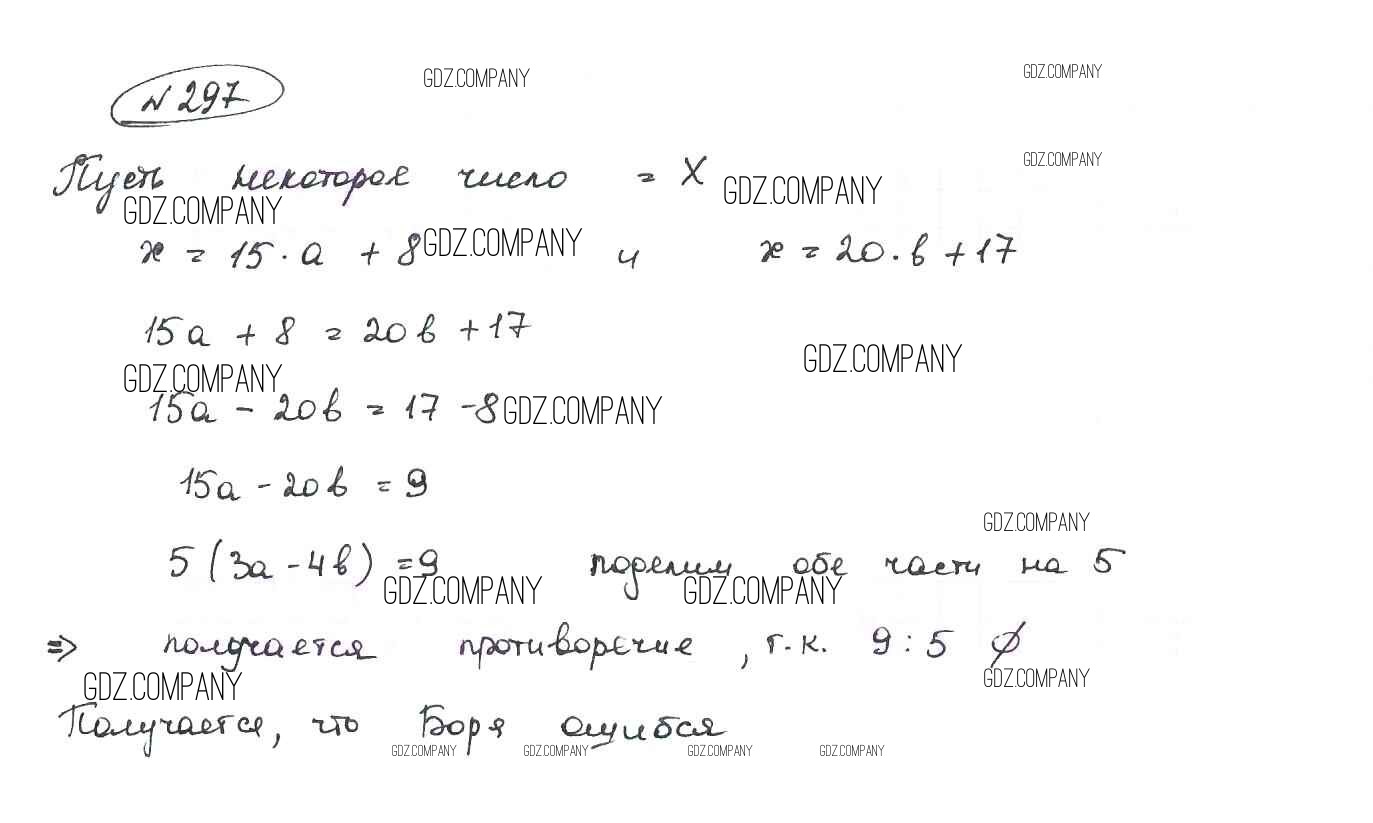 GDZ.COMPANY GDZ.COMPANY
№ 297
GDZ.COMPANY
Пусть некоторое число = X GDZ.COMPANY
GDZ.COMPANY
x = 15 · a + 8 GDZ.COMPANY и x = 20 · b + 17
15a + 8 = 20b + 17
GDZ.COMPANY
GDZ.COMPANY
15a - 20b = 17 - 8 GDZ.COMPANY
15a - 20b = 9
GDZ.COMPANY
5 (3a - 4b) = 9 поделим обе части на 5
GDZ.COMPANY GDZ.COMPANY
=> получается противоречие, т.к. 9 : 5 ∅
GDZ.COMPANY GDZ.COMPANY
Получается, что Боря ошибся
GDZ.COMPANY GDZ.COMPANY GDZ.COMPANY GDZ.COMPANY